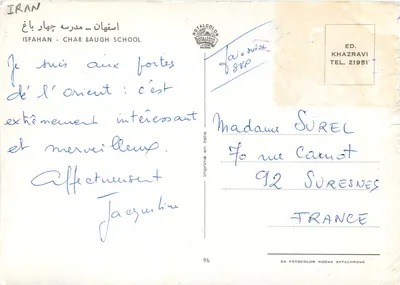 IRAN
اصفهان ـ مدرسه چهار باغ
ISFAHAN - CHAR BAUGH SCHOOL
Je suis aux portes
de l'orient : c'est
extrêmement intéressant
et merveilleux.
Affectueusement
Jacqueline
ROTALCOLOR
par avion
SVP
ED.
KHAZRAVI
TEL. 21951
Madame SUREL
70 rue Carnot
92 SURESNES
FRANCE
96
DA FOTOCOLOR KODAK EKTACHROME